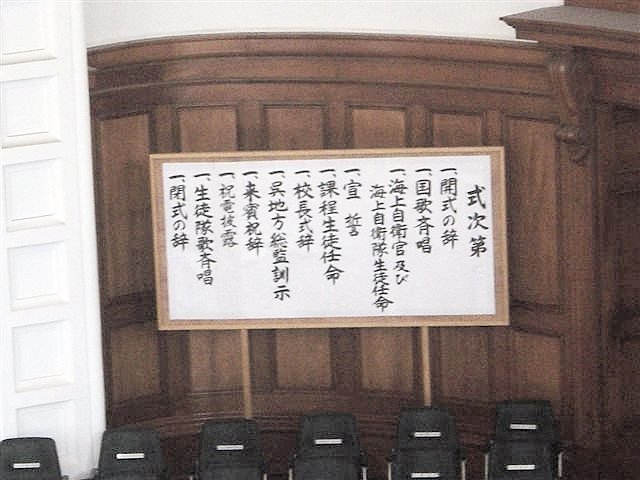 式次第
一、開式の辞
一、国歌斉唱
一、海上自衛官及び
海上自衛隊生徒任命
一、宣誓
一、課程生徒任命
一、校長式辞
一、呉地方総監訓示
一、来賓祝辞
一、祝電披露
一、生徒隊歌斉唱
一、閉式の辞